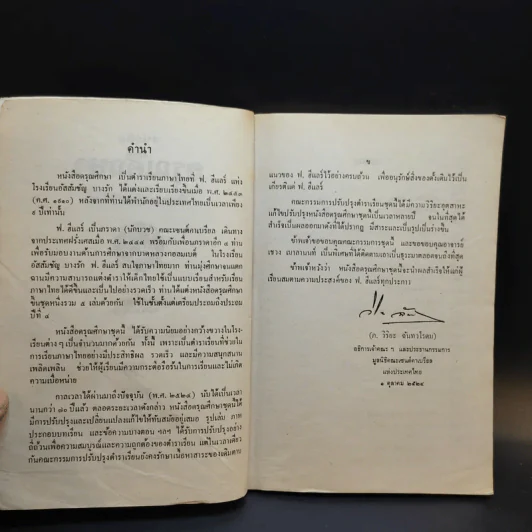 คำนำ
หนังสือดรุณศึกษา เป็นตำราเรียนภาษาไทยที่ ฟ. ฮีแลร์ แห่ง
โรงเรียนอัสสัมชัญ บางรัก ได้แต่งและเรียบเรียงขึ้นเมื่อ พ.ศ. ๒๔๕๓
(ค.ศ. ๑๙๑๐) หลังจากที่ท่านได้พำนักอยู่ในประเทศไทยเป็นเวลาเพียง
๙ ปีเท่านั้น
ฟ. ฮีแลร์ เป็นภราดา (นักบวช) คณะเซนต์คาเบรียล เดินทาง
จากประเทศฝรั่งเศสเมื่อ พ.ศ. ๒๔๔๔ พร้อมกับเพื่อนภราดาอีก ๔ ท่าน
เพื่อรับมอบงานด้านการศึกษาจากบาทหลวงกอลมเบต์ ในโรงเรียน
อัสสัมชัญ บางรัก ฟ. ฮีแลร์ สนใจภาษาไทยมาก ท่านมุ่งศึกษาจนแตก
ฉานมีความสามารถแต่งตำราให้เด็กไทยใช้เป็นแบบเรียนสำหรับเรียน
ภาษาไทยได้ดีขึ้นและเป็นไปอย่างรวดเร็ว ท่านได้แต่งหนังสือดรุณศึกษา
ขึ้นชุดหนึ่งรวม ๕ เล่มด้วยกัน ใช้ในชั้นตั้งแต่เตรียมประถมถึงประถม
ปีที่ ๔
หนังสือดรุณศึกษาชุดนี้ ได้รับความนิยมอย่างกว้างขวางในโรง-
เรียนต่างๆ เป็นจำนวนมากด้วยกัน ทั้งนี้ เพราะเป็นตำราเรียนที่ช่วยใน
การเรียนภาษาไทยอย่างมีประสิทธิผล รวดเร็ว และมีความสนุกสนาน
เพลิดเพลิน ช่วยให้ผู้เรียนมีความกระตือรือร้นในการเรียนและไม่เกิด
ความเบื่อหน่าย
กาลเวลาได้ผ่านมาถึงปัจจุบัน (พ.ศ. ๒๕๒๔) นับได้เป็นเวลา
นานกว่า ๗๐ ปีแล้ว ตลอดระยะเวลาดังกล่าว หนังสือดรุณศึกษาชุดนี้ได้
มีการปรับปรุงและเปลี่ยนแปลงแก้ไขให้ทันสมัยอยู่เสมอ รูปเล่ม ภาพ
ประกอบบทเรียน และข้อความบางตอน ฯลฯ ได้รับการปรับปรุงอย่าง
ถี่ถ้วนเพื่อความสมบูรณ์และความถูกต้องของตำราเรียน แต่ในเวลาเดียว
กันคณะกรรมการปรับปรุงตำราเรียนยังคงรักษาเนื้อหาสาระของเดิมตาม
ข
แนวของ ฟ. ฮีแลร์ไว้อย่างครบถ้วน เพื่ออนุรักษ์สิ่งของดั้งเดิมไว้เป็น
เกียรติแด่ ฟ. ฮีแลร์
คณะกรรมการปรับปรุงตำราเรียนชุดนี้ได้มีความวิริยะอุตสาหะ
แก้ไขปรับปรุงหนังสือดรุณศึกษาชุดนี้เป็นเวลาหลายปี จนในที่สุดได้
สำเร็จเป็นผลออกมาดังที่ได้ปรากฏ มีสาระและเป็นรูปเป็นร่างขึ้น
ข้าพเจ้าขอขอบคุณคณะกรรมการชุดนี้ และขอขอบคุณอาจารย์
เป็นพิเศษที่ได้ติดตามเอาเป็นธุระมาตลอดจนถึงที่สุด
ข้าพเจ้าหวังว่า หนังสือดรุณศึกษาชุดนี้จะนำผลสำเร็จให้แก่ผู้
เรียนสมตามความประสงค์ของ ฟ. ฮีแลร์ทุกประการ
(ภ. วิริยะ ฉันทวโรดม)
อธิการเจ้าคณะฯ และประธานกรรมการ
มูลนิธิคณะเซนต์คาเบรียล
แห่งประเทศไทย
๑ ตุลาคม ๒๕๒๔